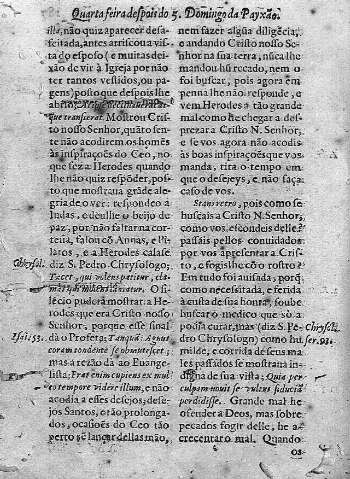 Quarta feira despois do 5. Domingo da Payxão.
illa, não quiz aparecer desa-
feitada, antes arriscou a vis-
ta do esposo (e muitas dei-
xão de vir à Igreja por não
ter tantos vestidos, ou pa-
gens) posto que despois lhe
transieret. Mostrou Cristo
nosso Senhor, quáto sen-
te não acodirem os homẽs
às inspirações do Ceo, no
que fez a Herodes quando
lhe não quiz respõder, pos-
to que mostraua gráde ale-
gria de o ver: respondeo a
Iudas, e deulhe o beijo de
paz, por não faltar na cor-
tezia, falou cõ Annas, e Pi-
latos, e a Herodes calase
diz S. Pedro Chrysologo;
Tacet, qui videri patitur,
O si-
lécio pudera mostrar a He-
rodes que era Cristo nosso
Senhor, porque esse sinal
dà o Profeta; Tanquã Agnus
coram tondente se obmutescet;
mas a rezão da ao Euange-
lista; Erat enim cupiens ex mul-
to tempore videre illum, e não
acodia a esses desejos; dese-
jos Santos, e tão prolonga-
dos, ocasioẽs do Ceo tão
perto se lançar dellas mão,
Chrysol.
Isai. 53.
nem fazer algũa diligẽcia,
e andando Cristo nosso Se-
nhor na sua terra, nũca lhe
mandou hũ recado, nem o
foi buscar, pois agora em
penna lhe não responde, e
vem Herodes a tão grande
mal como he chegar a des-
prezar a Cristo N. Senhor,
e se vos agora não acodis
às boas inspirações que vos
manda, tira o tempo em
que o desejeys, e não faça
caso de vos.
Stans retro, pois como se
buscais a Cristo N. Senhor,
como vos escondeis delle?
passais pellos conuidados
por vos offerecer a Cristo,
e fogislhe cõ o rostro?
Em tudo foi ausada, porq̃
como necessitada, e ferida
à custa de sua honra, soube
buscar o medico que só a
podia curar, mas (diz S. Pe-
dro Chrysologo) como hu-
milde, e corrida de seus ma-
les passados se mostra in-
digna de sua vista; Quia per
culpam nouit se vultus fiducia
perdidisse. Grande mal he
ofender a Deos, mas sobre
pecados fogir delle, he a-
crecentaro mal. Quando
Chrysol.
ser. 93.
os